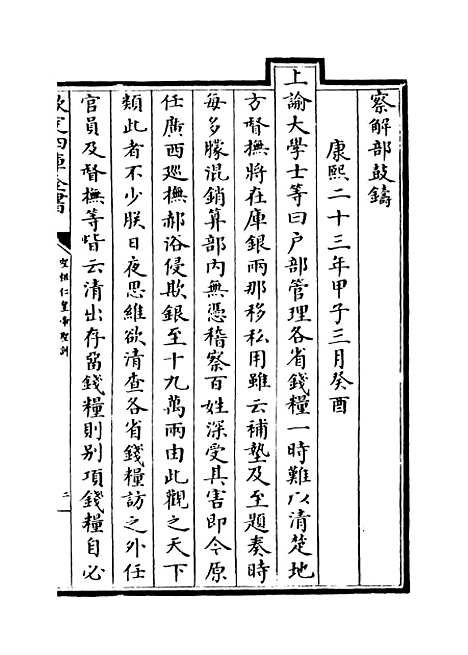 察解部鼓鑄
康熙二十三年甲子三月癸酉
上諭大學士等曰户部管理各省錢糧一時難以清楚地
方督撫將在庫銀兩那移私用雖云補墊及至題奏時
每多朦混銷算部内無憑稽察百姓深受其害即令原
任廣西廵撫郝浴侵欺銀至十九萬兩由此觀之天下
類此者不少朕日夜思維欲清查各省錢糧訪之外任
官員及督撫等皆云清出存留錢糧則别項錢糧自必
欽定四庫全書
聖祖仁皇帝聖訓
二